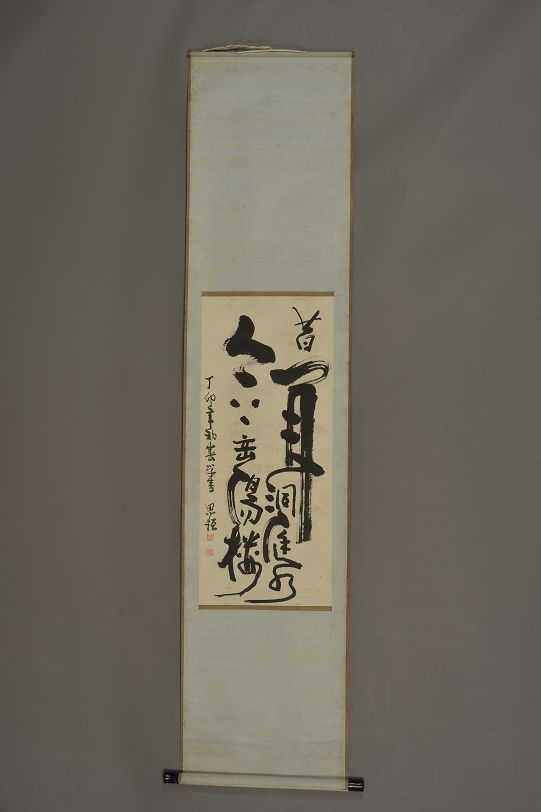 昔聞洞庭水
今上岳陽樓
丁卯年初春學書 思經